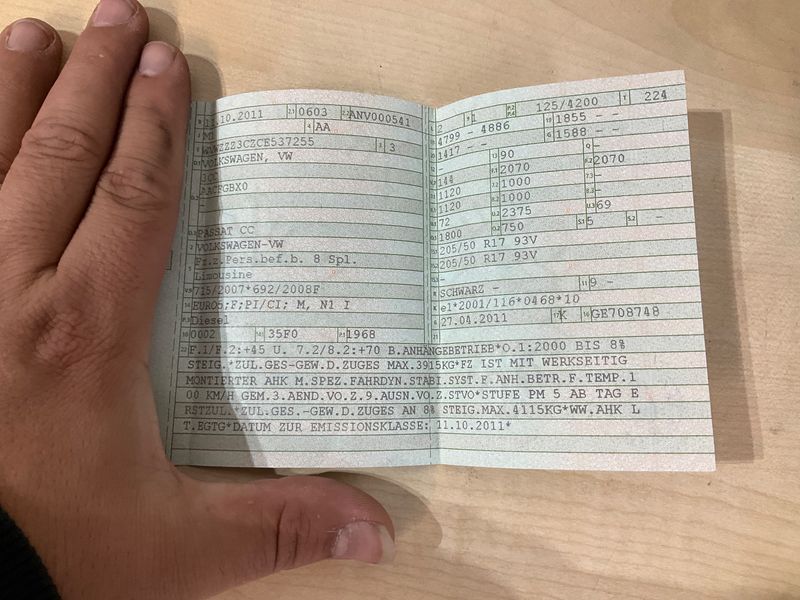 .10.2011 2.1 0603 2.2 ANV000541
AA
WVWZZZ3CZCE537255 3 3
VOLKSWAGEN, VW
3CC
PACFGBX0
-
PASSAT CC
VOLKSWAGEN-VW
Fz.z.Pers.bef.b. 8 Spl.
Limousine
715/2007*692/2008F
EURO5;F;PI/CI; M, N1 I
Diesel
0002 35F0 P.1 1968
2 9 1 P.2 P.4 125/4200 T 224
4799 - 4886 1855 - -
1417 - - 1588 - -
90 Q -
144 2070 2070
1120 7.2 1000 7.3 -
1120 8.2 1000 8.3 -
72 U.2 2375 U.3 69
1800 O.2 750 S.1 5 S.2 -
205/50 R17 93V
205/50 R17 93V
-
SCHWARZ - 11 9 -
e1*2001/116*0468*10
27.04.2011 17 K 16 GE708748
22 F.1/F.2:+45 U. 7.2/8.2:+70 B.ANHÄNGEBETRIEB*O.1:2000 BIS 8%
STEIG.*ZUL.GES-GEW.D.ZUGES MAX.3915KG*FZ IST MIT WERKSEITIG
MONTIERTER AHK M.SPEZ.FAHRDYN.STABI.SYST.F.ANH.BETR.F.TEMP.1
00 KM/H GEM.3.AEND.VO.Z.9.AUSN.VO.Z.STVO*STUFE PM 5 AB TAG E
RSTZUL.*ZUL.GES.-GEW.D.ZUGES AN 8% STEIG.MAX.4115KG*WW.AHK L
T.EGTG*DATUM ZUR EMISSIONSKLASSE: 11.10.2011*